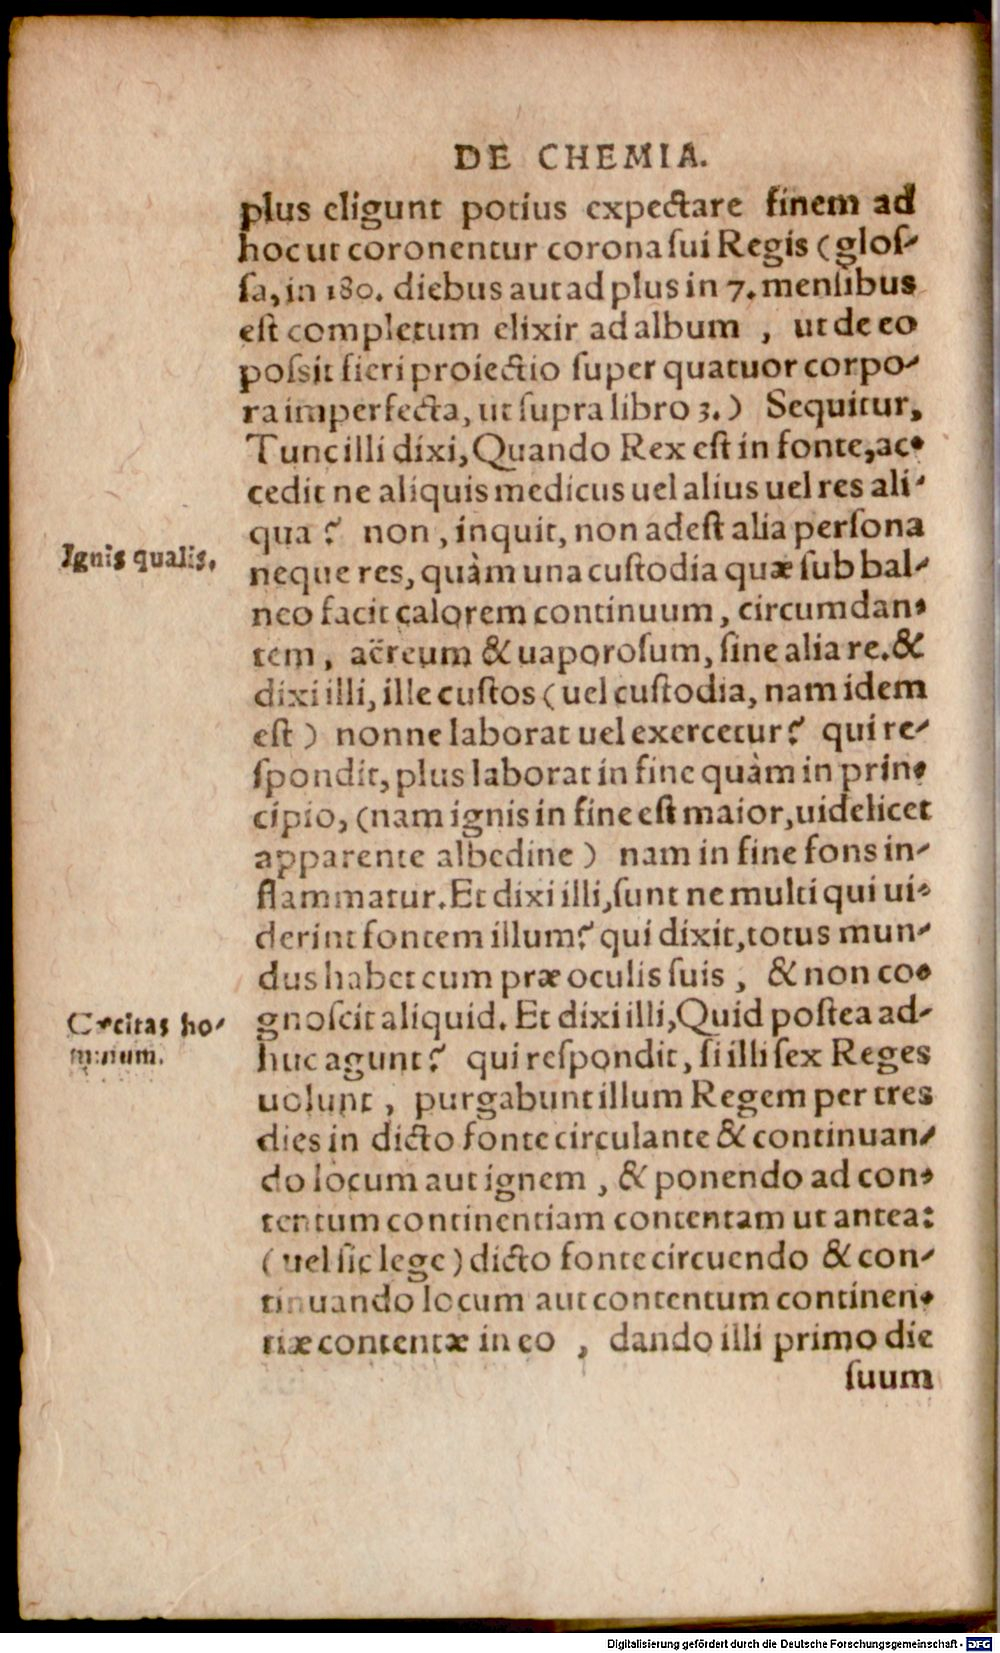 DE CHEMIA.
plus eligunt potius expectare finem ad
hoc ut coronentur corona sui Regis (glos-
sa, in 180. diebus aut ad plus in 7. mensibus
est completum elixir ad album , ut de eo
possit fieri proiectio super quatuor corpo-
ra imperfecta, ut supra libro 3.) Sequitur,
Tunc illi dixi, Quando Rex est in fonte, ac-
cedit ne aliquis medicus uel alius uel res ali-
qua? non, inquit, non adest alia persona
Ignis qualis.
neque res, quàm una custodia quæ sub bal-
neo facit calorem continuum, circumdan-
tem, aëreum & uaporosum, sine alia re. &
dixi illi, ille custos (uel custodia, nam idem
est) nonne laborat uel exercetur? qui re-
spondit, plus laborat in fine quàm in prin-
cipio, (nam ignis in fine est maior, uidelicet
apparente albedine) nam in fine fons in-
flammatur. Et dixi illi, sunt ne multi qui ui-
derint fontem illum? qui dixit, totus mun-
dus habet eum præ oculis suis, & non co-
Cæcitas ho-
minum.
gnoscit aliquid. Et dixi illi, Quid postea ad-
huc agunt? qui respondit, si illi sex Reges
uolunt, purgabunt illum Regem per tres
dies in dicto fonte circulante & continuan-
do locum aut ignem, & ponendo ad con-
tentum continentiam contentam ut antea:
(uel sic lege) dicto fonte circuendo & con-
tinuando locum aut contentum continen-
tiæ contentæ in eo , dando illi primo die
suum
Digitalisierung gefördert durch die Deutsche Forschungsgemeinschaft - DFG